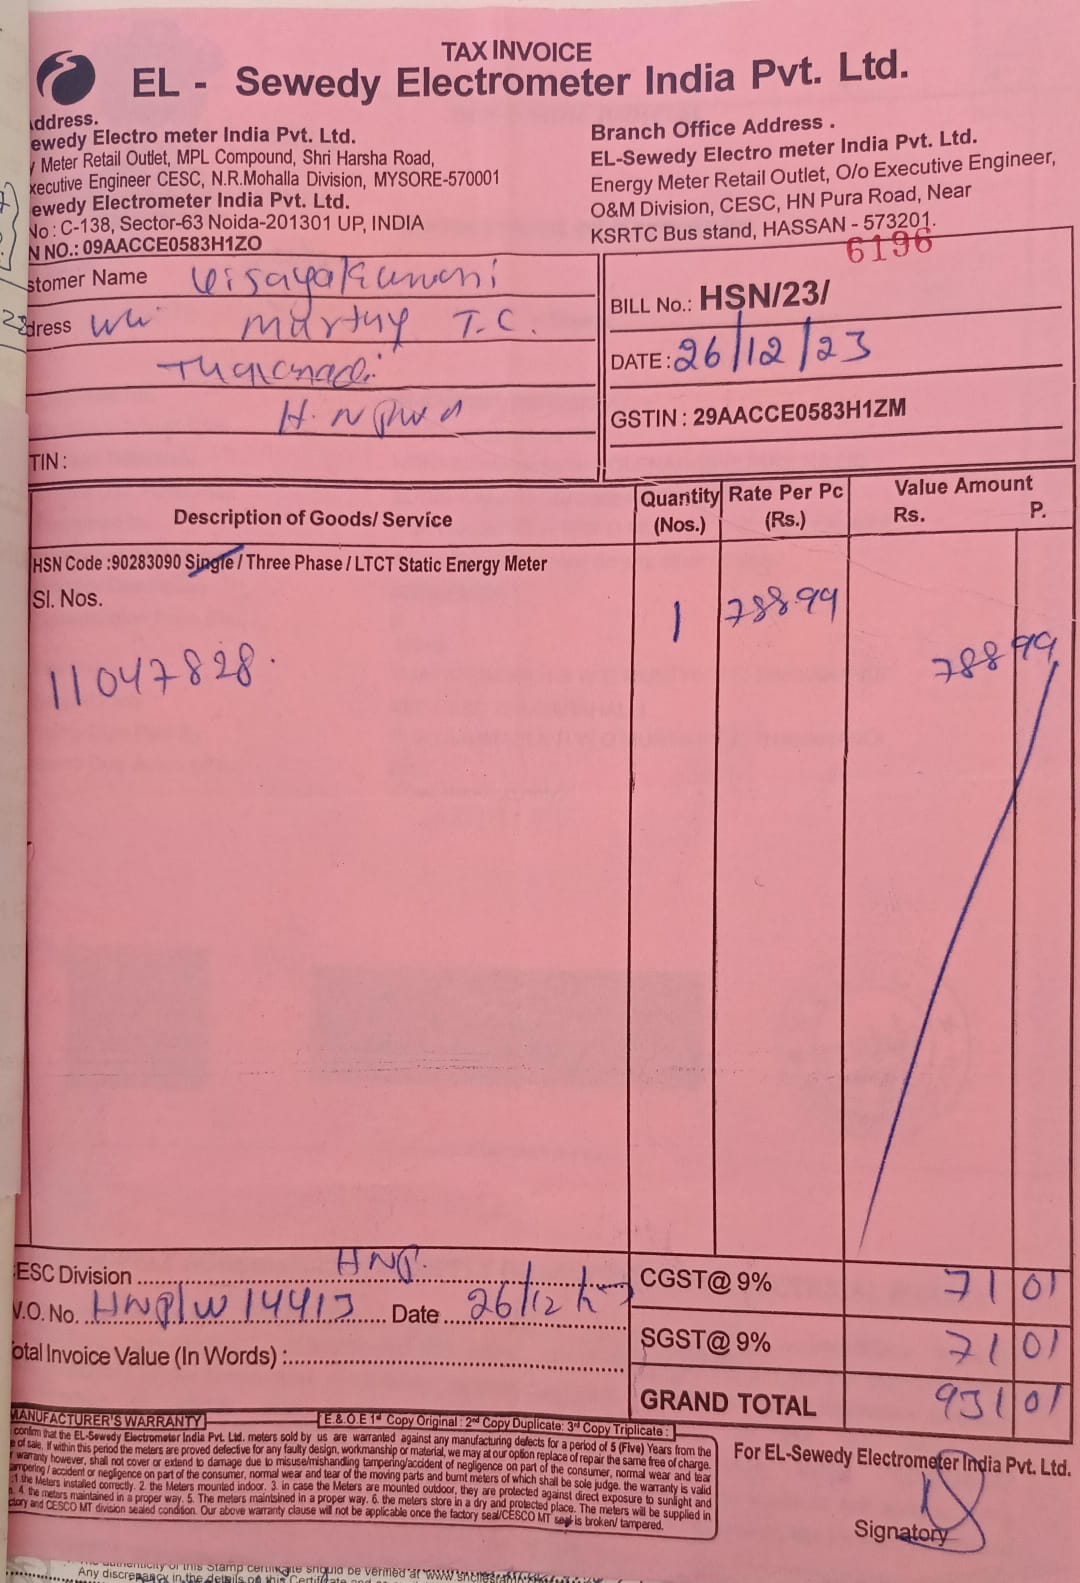 TAX INVOICE
EL - Sewedy Electrometer India Pvt. Ltd.
ddress.
ewedy Electro meter India Pvt. Ltd.
Meter Retail Outlet, MPL Compound, Shri Harsha Road,
xecutive Engineer CESC, N.R.Mohalla Division, MYSORE-570001
ewedy Electrometer India Pvt. Ltd.
No : C-138, Sector-63 Noida-201301 UP, INDIA
N NO.: 09AACCE0583H1ZO
Branch Office Address .
EL-Sewedy Electro meter India Pvt. Ltd.
Energy Meter Retail Outlet, O/o Executive Engineer,
O&M Division, CESC, HN Pura Road, Near
KSRTC Bus stand, HASSAN - 573201.
6196
stomer Name
dress
T.C.
TIN :
BILL No.: HSN/23/
DATE : 26/12/23
GSTIN : 29AACCE0583H1ZM
Description of Goods/ Service
Quantity (Nos.)
Rate Per Pc (Rs.)
Value Amount
Rs. P.
HSN Code :90283090 Single / Three Phase / LTCT Static Energy Meter
Sl. Nos.
1 788.99
788 99
11047828.
ESC Division HNP.
V.O. No. HNP/W14413 Date 26/12
otal Invoice Value (In Words) :
CGST@ 9% 71 01
SGST@ 9% 71 01
GRAND TOTAL 931 01
MANUFACTURER'S WARRANTY
E & O.E 1st Copy Original : 2nd Copy Duplicate: 3rd Copy Triplicate :
confirm that the EL-Sewedy Electrometer India Pvt. Ltd. meters sold by us are warranted against any manufacturing defects for a period of 5 (Five) Years from the
e of sale. If within this period the meters are proved defective for any faulty design, workmanship or material, we may at our option replace of repair the same free of charge.
warranty however, shall not cover or extend to damage due to misuse/mishandling tampering/accident of negligence on part of the consumer, normal wear and tear
ampering / accident or negligence on part of the consumer, normal wear and tear of the moving parts and burnt meters of which shall be sole judge. the warranty is valid
:1 the Meters installed correctly. 2. the Meters mounted indoor. 3. in case the Meters are mounted outdoor, they are protected against direct exposure to sunlight and
4. the meters maintained in a proper way. 5. The meters maintained in a proper way. 6. the meters store in a dry and protected place. The meters will be supplied in
ctory and CESCO MT division sealed condition. Our above warranty clause will not be applicable once the factory seal/CESCO MT seal is broken/ tampered.
For EL-Sewedy Electrometer India Pvt. Ltd.
Signatory
authenticity of this Stamp certificate should be verified at
Any discrepancy in the details on this Certificate and